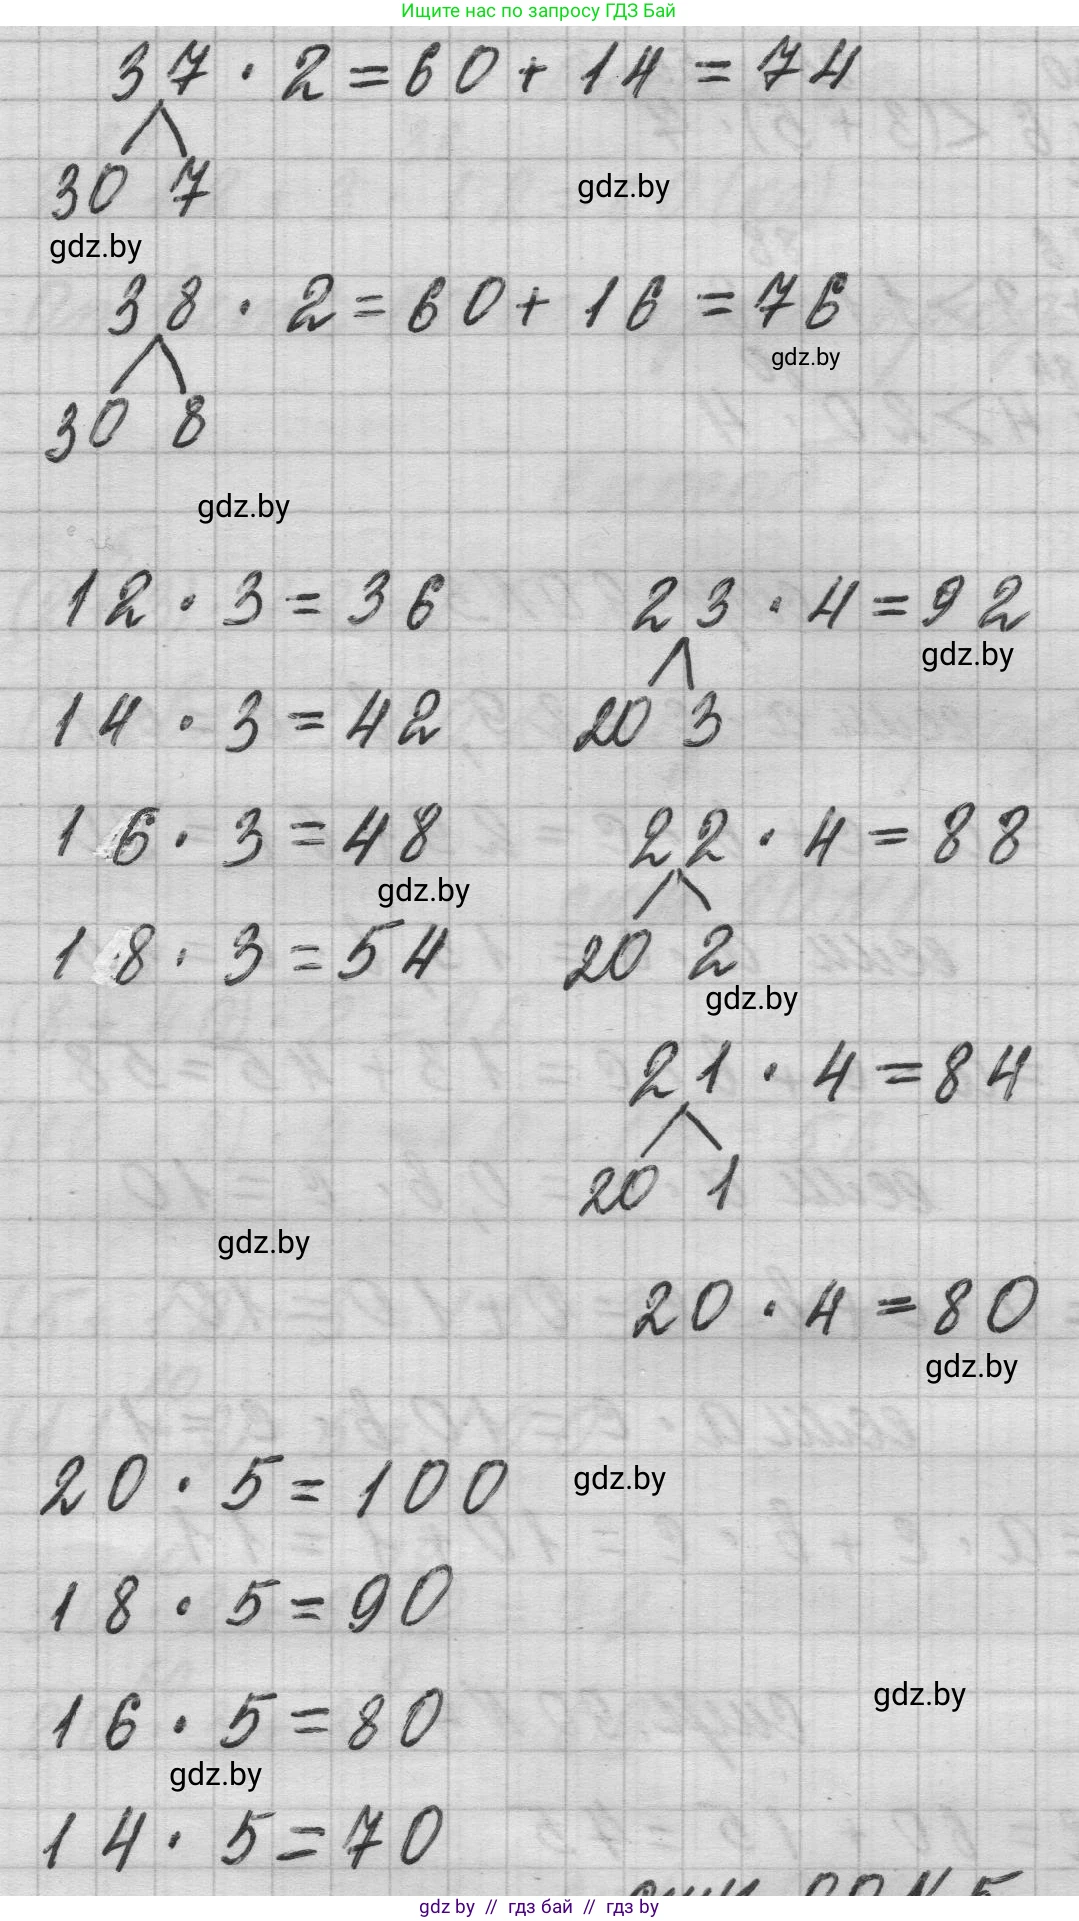 Ищите нас по запросу ГДЗ Бай
37 · 2 = 60 + 14 = 74
30 7
gdz.by
gdz.by
38 · 2 = 60 + 16 = 76
gdz.by
30 8
gdz.by
12 · 3 = 36
14 · 3 = 42
16 · 3 = 48
gdz.by
18 · 3 = 54
23 · 4 = 92
gdz.by
20 3
22 · 4 = 88
20 2
gdz.by
21 · 4 = 84
20 1
gdz.by
20 · 4 = 80
gdz.by
20 · 5 = 100
gdz.by
18 · 5 = 90
16 · 5 = 80
gdz.by
gdz.by
14 · 5 = 70
gdz by // гдз бай // гдз by